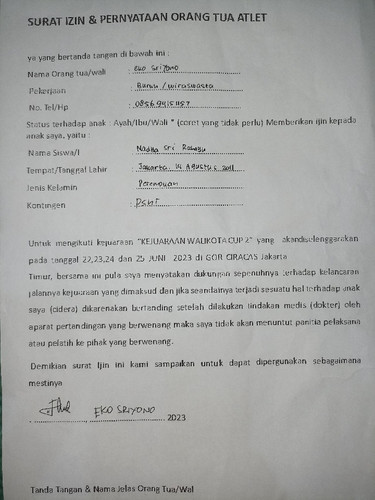 SURAT IZIN & PERNYATAAN ORANG TUA ATLET
ya yang bertanda tangan di bawah ini :
Nama Orang tua/wali : EKO SRIYONO
Pekerjaan : Buruh / wiraswasta
No. Tel/Hp :
Status terhadap anak : Ayah/Ibu/Wali * (coret yang tidak perlu) Memberikan ijin kepada
anak saya, yaitu :
Nama Siswa/I : Nadya Sri Rahayu
Tempat/Tanggal Lahir : Jakarta, 14 Agustus 2011
Jenis Kelamin : Perempuan
Kontingen : PSHT
Untuk mengikuti kejuaraan "KEJUARAAN WALIKOTA CUP 2" yang akandiselenggarakan
pada tanggal 22,23,24 dan 25 JUNI 2023 di GOR CIRACAS Jakarta
Timur, bersama ini pula saya menyatakan dukungan sepenuhnya terhadap kelancaran
jalannya kejuaraan yang dimaksud dan jika seandainya terjadi sesuatu hal terhadap anak
saya (cidera) dikarenakan bertanding setelah dilakukan tindakan medis (dokter) oleh
aparat pertandingan yang berwenang maka saya tidak akan menuntut panitia pelaksana
atau pelatih ke pihak yang berwenang.
Demikian surat Ijin ini kami sampaikan untuk dapat dipergunakan sebagaimana
mestinya
EKO SRIYONO 2023
Tanda Tangan & Nama Jelas Orang Tua/Wal